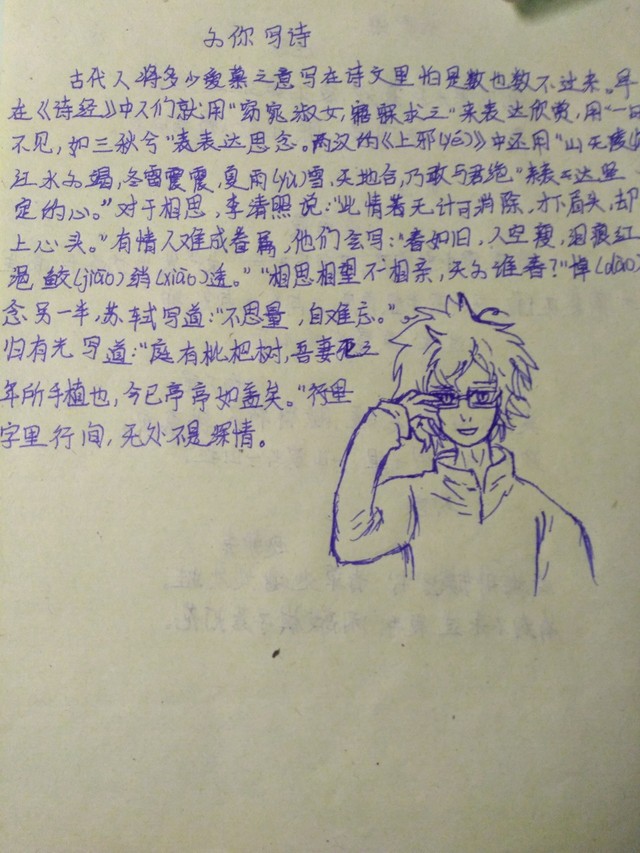 为你写诗
古代人将多少爱慕之意写在诗文里怕是数也数不过来。早
在《诗经》中人们就用“窈窕淑女,寤寐求之”来表达欣赏,用“一日
不见,如三秋兮”表表达思念。两汉的《上邪(yé)》中还用“山无陵
江水为竭,冬雷震震,夏雨(yù)雪,天地合,乃敢与君绝”来表达坚
定的心。”对于相思,李清照说:“此情若无计可消除,才下眉头,却
上心头。”有情人难成眷属,他们会写:“春如旧,人空瘦,泪痕红
浥鲛(jiāo)绡(xiāo)透。”“相思相望不相亲,天为谁春?”悼(dào)
念另一半,苏轼写道:“不思量,自难忘。”。
归有光写道:“庭有枇杷树,吾妻死之
年所手植也,今已亭亭如盖矣。”行里
字里行间,无处不是深情。